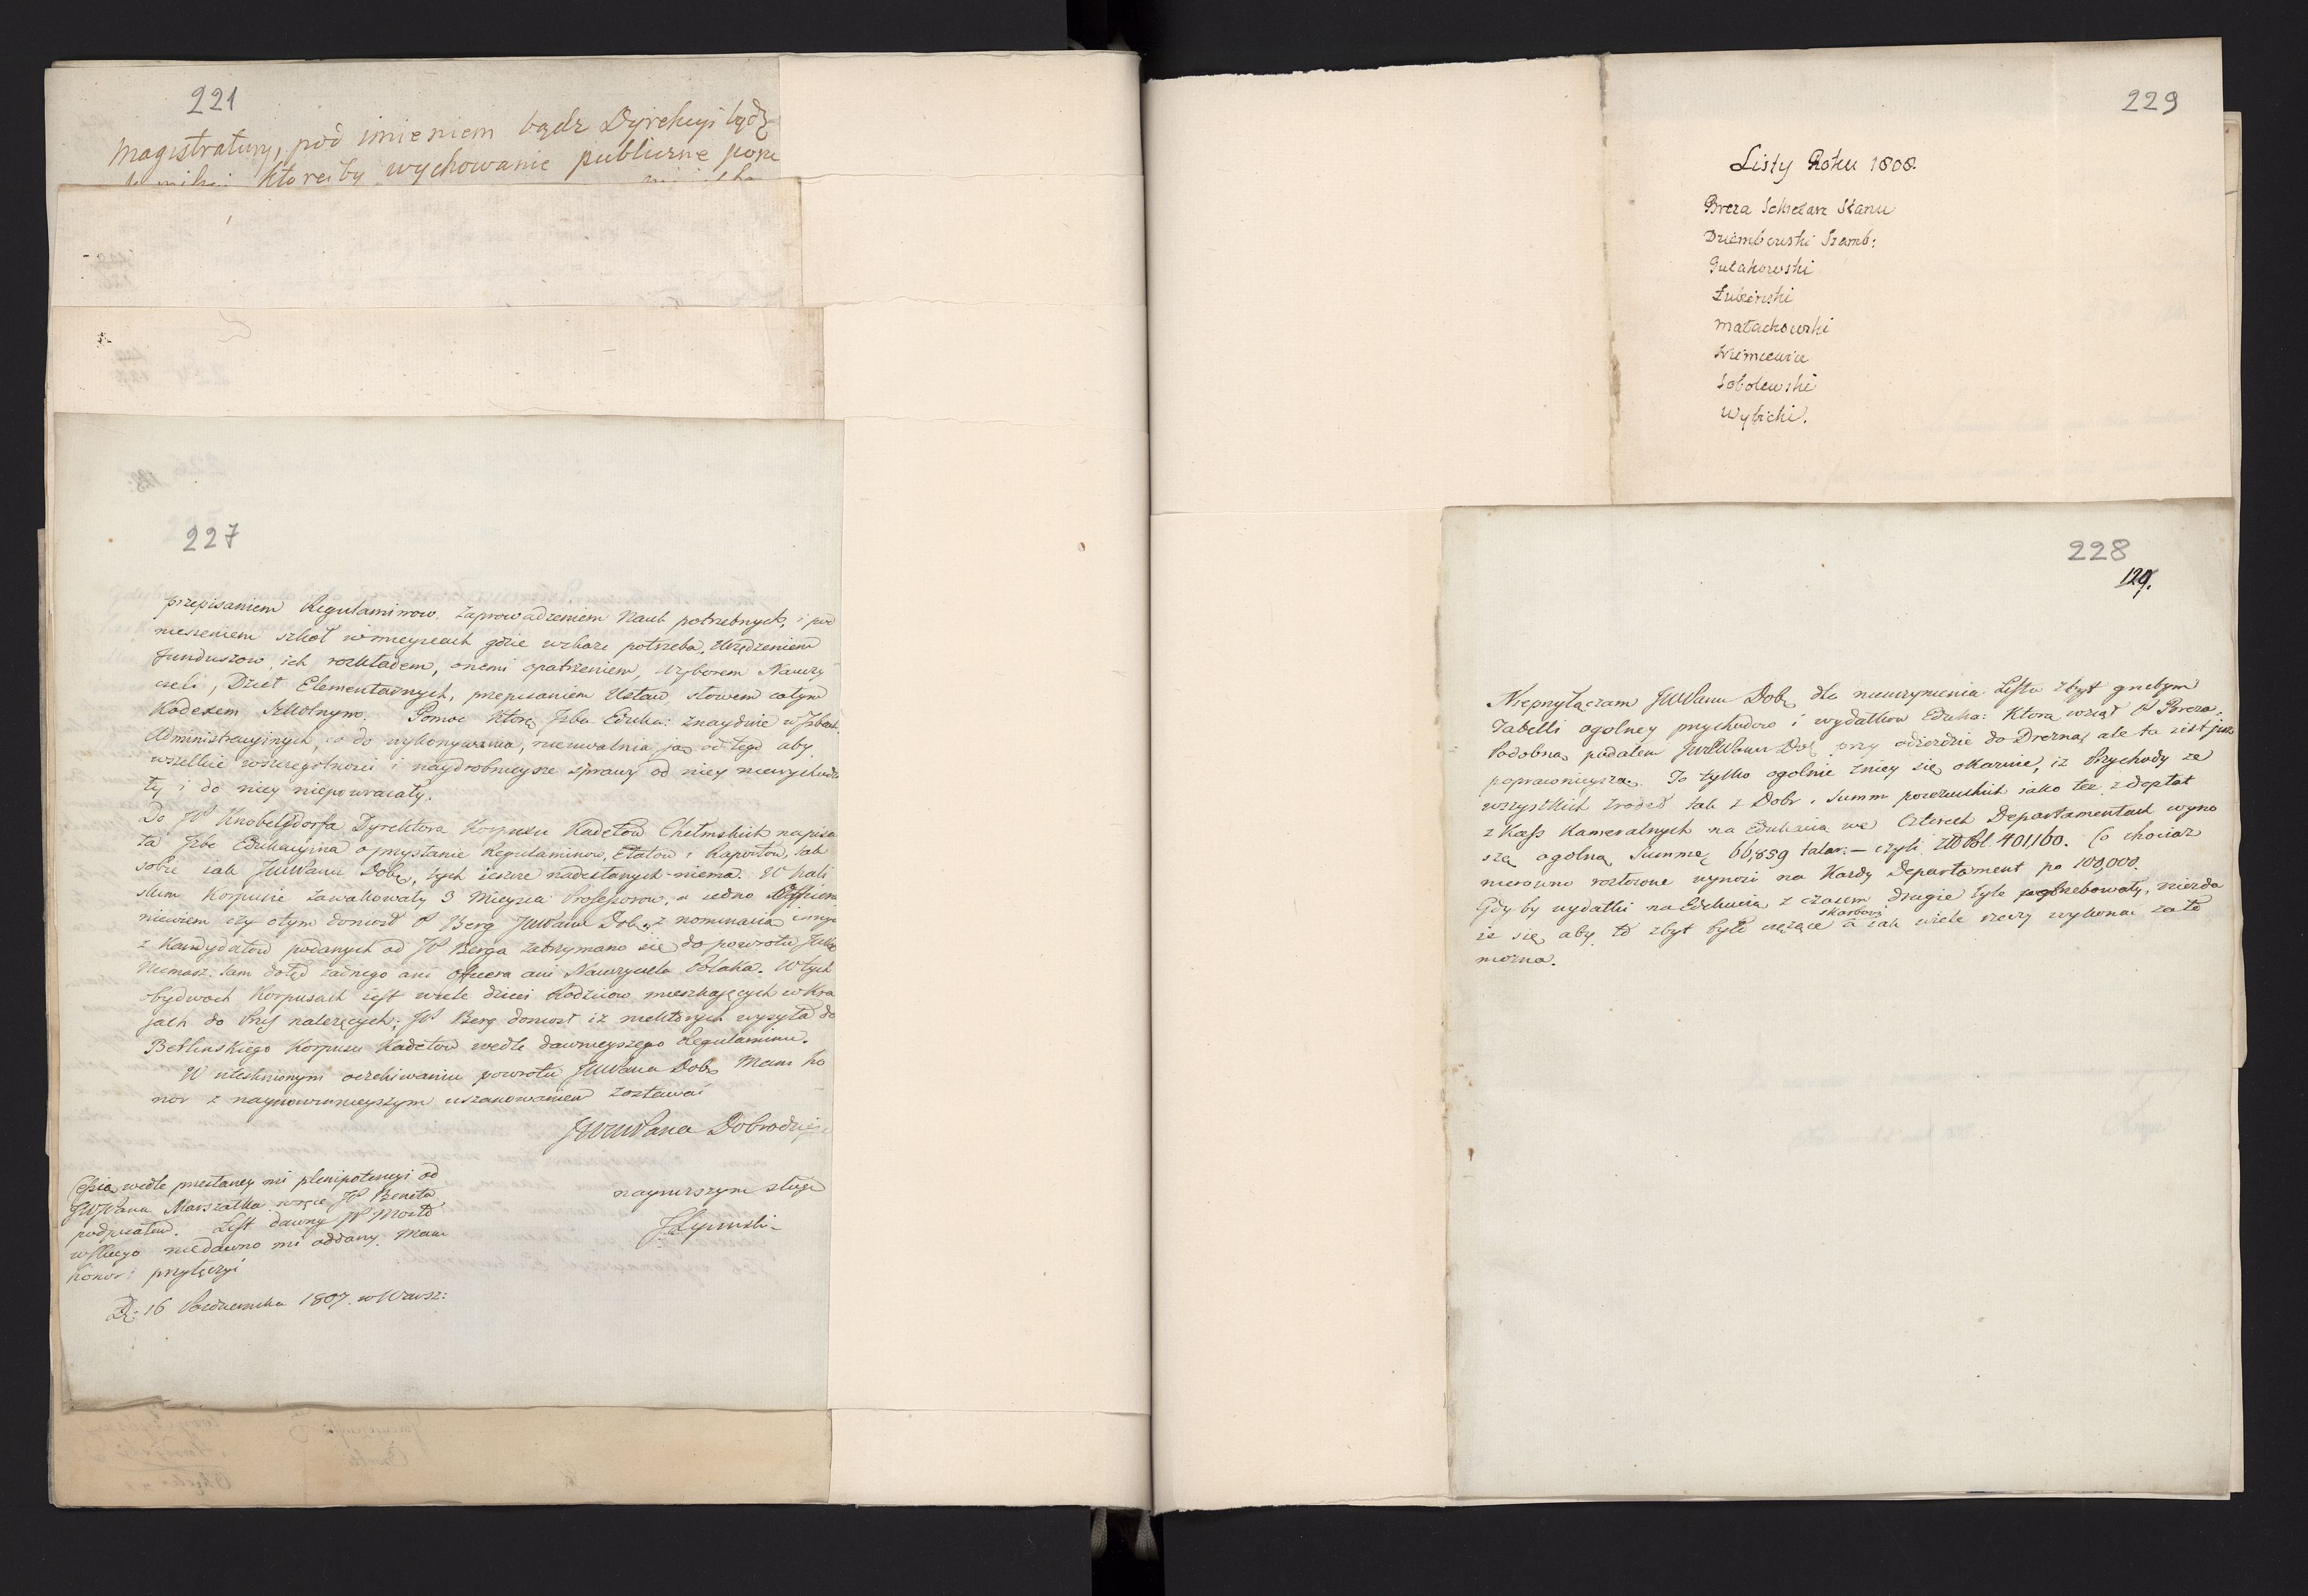 221
Magistratury, pod imieniem bądz Dyrekcyi bądz
ktoreiby wychowanie publiczne
227
przepisaniem Regulaminow, zaprowadzeniem Nauk potrzebnych, i pod
niesieniem szkoł w mieyscach gdzie wskaze potrzeba, Urządzeniem
Funduszow, ich rozkładem, onemi opatrzeniem, wyborem Nauczy
cieli, Dzieł Elementarnych, przepisaniem Ustaw słowem całym
Kodexem Szkolnym. Pomoc ktorą Izba Eduka: znaydzie w Izbach
Administracyinych, co do wykonywania, nieuwalnia ją od tego aby
wszelkie szczegolnosci i naydrobnieysze sprawy od niey niewychodzi
ły i do niey niepowracały.
Do JP Knobelsdorfa Dyrektora Korpusu Kadetow Chełmskich napisa
ła Izba Edukacyina o przysłanie Regulaminow, Etatow i Raportow, tak
sobie iak JWWanu Dobr, tych ieszcze nadesłanych niema. W Kali
skim Korpusie zawakowały 3 Mieysca Professorow, a iedno
niewiem czy o tym doniosł P Berg JWWanu Dobr, z nominacią
z Kandydatow podanych od JP Berga zatrzymano się do powrotu
Niemasz tam dotąd żadnego ani Oficera ani Nauczyciela Polaka. W tych
obydwoch Korpusach iest wiele dzieci Rodzicow mieszkaiących w Kra
jach do Prus należących; JP Berg doniosł iż niektorych wysyła do
Berlinskiego Korpusu Kadetow wedle dawnieyszego Regulaminu.
W utesknionym oczekiwaniu powrotu JWWana Dobr. Mam ho
nor z nayпowinnieyszym uszanowaniem zostawać
JWWWana Dobrodzieja
naynizszym sługą
JLipinski
Cessią wedle przesłaney mi plenipotencyi od
JWWana Marszałka
podpisałem. List dawny JP
niedawno mi oddany. Mam
honor przyłączyć
D: 16 Pazdziernika 1807. w Warsz:
229
Listy Roku 1808.
Breza Sekretarz Stanu
Dziembowski Szamb:
Gutakowski
Łubieński
Małachowski
Niemcewicz
Sobolewski
Wybicki.
228
129.
Nieprzyłączam JWWanu Dobr. dla nieuczynienia Listu zbyt grubym
Tabelli ogolney przychodow i wydatkow Eduka: ktorą wziął JP Breza.
Podobną podałem JWWWanu Dob: przy odieździe do Drezna, ale ta iest już
poprawnieysza. To tylko ogolnie z niey się okazuie, iż Przychody ze
wszystkich zrodeł tak z Dobr i Summ poiezuickich iako też z dopłat
z Kass Kameralnych na Edukacią we Czterech Departamentach wyno
szą ogolną Summę 66,859 talar: – czyli Zło Pol. 401,160. Co chociaż
nierowno rozłożone wynosi na Każdy Departament po 100,000.
Gdyby wydatki na Edukacią z czasem drugie tyle potrzebowały, niezda
ie się, aby to zbyt było ciężące skarbowi a iak wiele rzeczy wykonać za to
można.